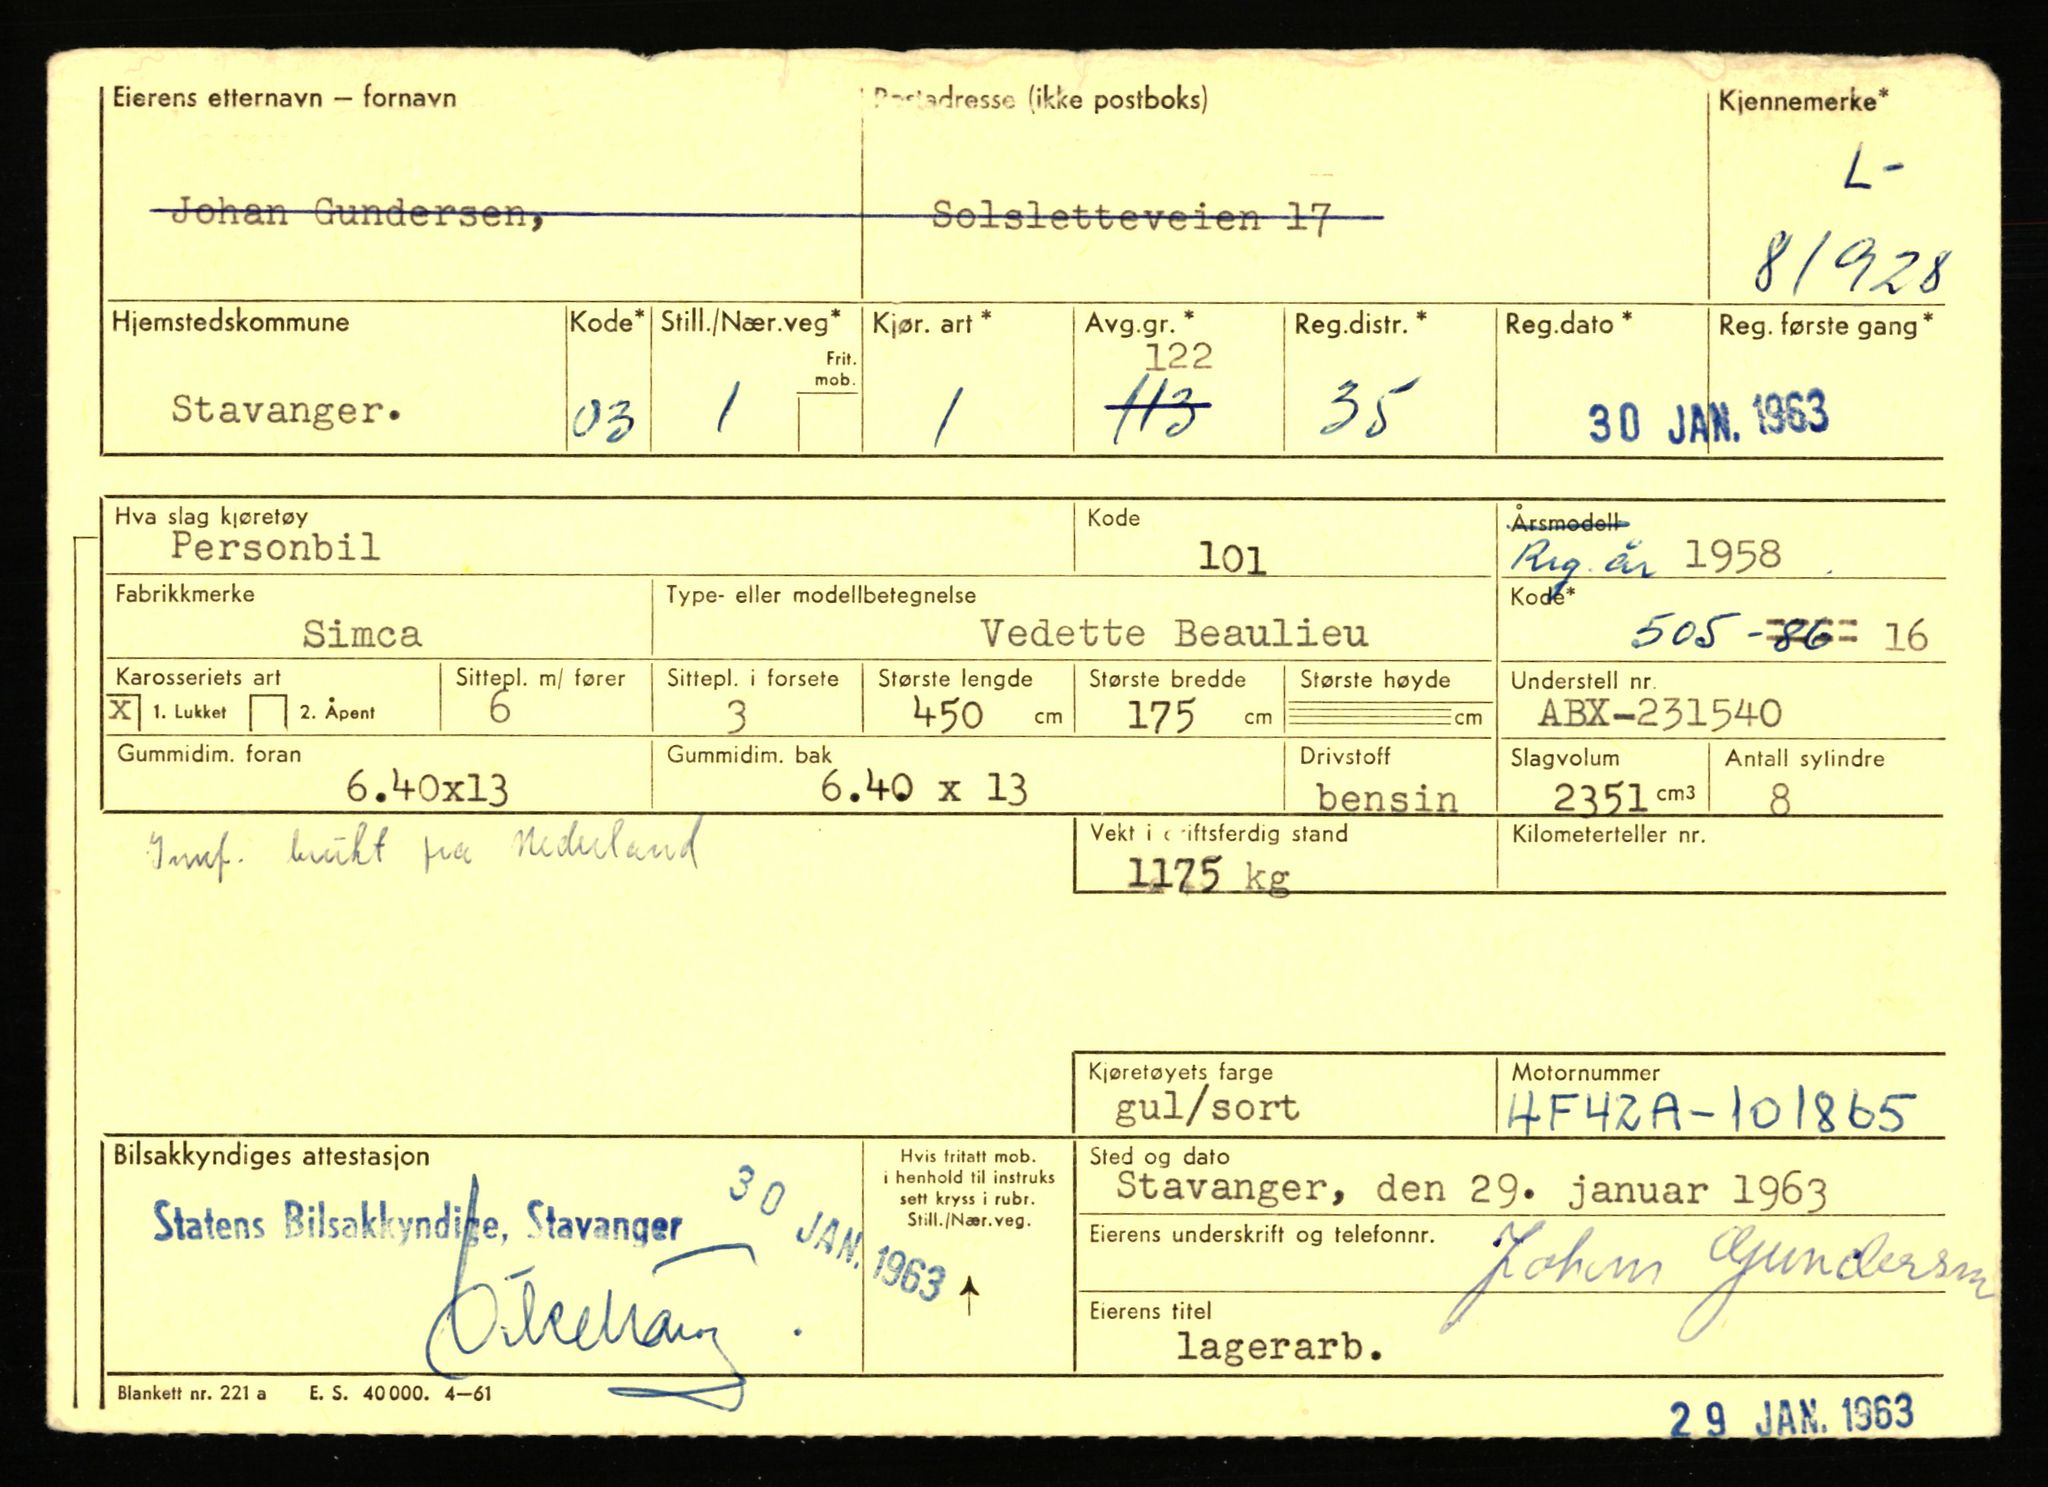 Eierens etternavn – fornavn
Postadresse (ikke postboks)
Kjennemerke*
L-
Johan Gundersen,
Solsletteveien 17
81928
Hjemstedskommune
Kode*
Still./Nær.veg*
Kjør. art *
Avg.gr. *
Reg.distr. *
Reg.dato *
Reg. første gang*
Frit. mob.
122
Stavanger.
03
1
1
113
35
30 JAN. 1963
Hva slag kjøretøy
Kode
Årsmodell
Personbil
101
Reg. år 1958
Fabrikkmerke
Type- eller modellbetegnelse
Kode*
Simca
Vedette Beaulieu
505 - 86 16
Karosseriets art
Sittepl. m/ fører
Sittepl. i forsete
Største lengde
Største bredde
Største høyde
Understell nr.
X 1. Lukket 2. Åpent
6
3
450 cm
175 cm
cm
ABX-231540
Gummidim. foran
Gummidim. bak
Drivstoff
Slagvolum
Antall sylindre
6.40x13
6.40 x 13
bensin
2351 cm3
8
Imp. brukt fra Nederland
Vekt i driftsferdig stand
Kilometerteller nr.
1175 kg
Kjøretøyets farge
Motornummer
gul/sort
4F42A-101865
Bilsakkyndiges attestasjon
Hvis fritatt mob.
i henhold til instruks
sett kryss i rubr.
Still./Nær.veg.
Sted og dato
Stavanger, den 29. januar 1963
Statens Bilsakkyndige, Stavanger
30 JAN. 1963
Eierens underskrift og telefonnr.
Johan Gundersen
Eierens titel
lagerarb.
Blankett nr. 221 a E. S. 40 000. 4–61
29 JAN. 1963